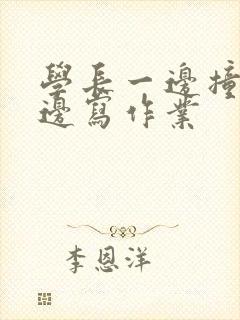 學長一邊撞
邊寫作業
李恩洋